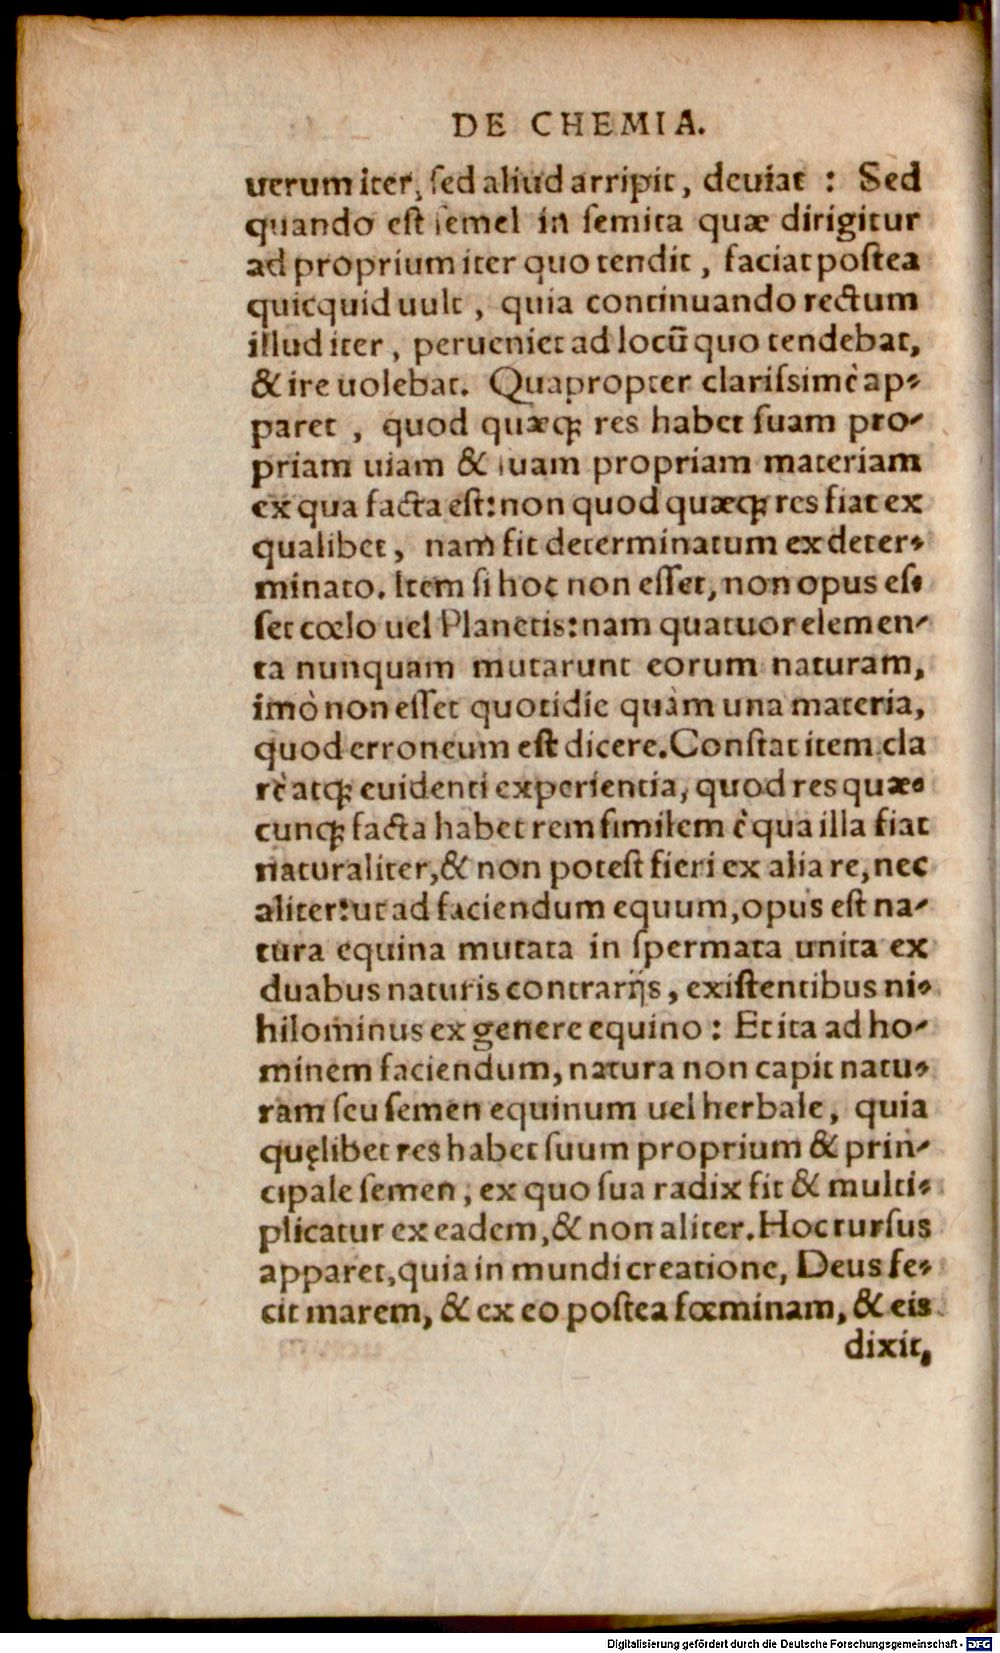 DE CHEMIA.
uerum iter, ſed aliud arripit, deuiat : Sed
quando eſt ſemel in ſemita quæ dirigitur
ad proprium iter quo tendit, faciat poſtea
quicquid uult, quia continuando rectum
illud iter, perueniet ad locū quo tendebat,
& ire uolebat. Quapropter clariſsimè ap-
paret, quod quæq; res habet ſuam pro-
priam uiam & ſuam propriam materiam
ex qua facta eſt: non quod quæq; res fiat ex
qualibet, nam fit determinatum ex deter-
minato. Item ſi hoc non eſſet, non opus eſ-
ſet cœlo uel Planetis: nam quatuor elemen-
ta nunquam mutarunt eorum naturam,
imò non eſſet quotidie quàm una materia,
quod erroneum eſt dicere. Conſtat item cla
rè atq; euidenti experientia, quod res quæ-
cunq; facta habet rem ſimilem è qua illa fiat
naturaliter, & non poteſt fieri ex alia re, nec
aliter: ut ad faciendum equum, opus eſt na-
tura equina mutata in ſpermata unita ex
duabus naturis contrarijs, exiſtentibus ni-
hilominus ex genere equino: Et ita ad ho-
minem faciendum, natura non capit natu-
ram ſeu ſemen equinum uel herbale, quia
quęlibet res habet ſuum proprium & prin-
cipale ſemen, ex quo ſua radix fit & multi-
plicatur ex eadem, & non aliter. Hoc rurſus
apparet, quia in mundi creatione, Deus fe-
cit marem, & ex eo poſtea fœminam, & eis
dixit,
Digitalisierung gefördert durch die Deutsche Forschungsgemeinschaft - DFG